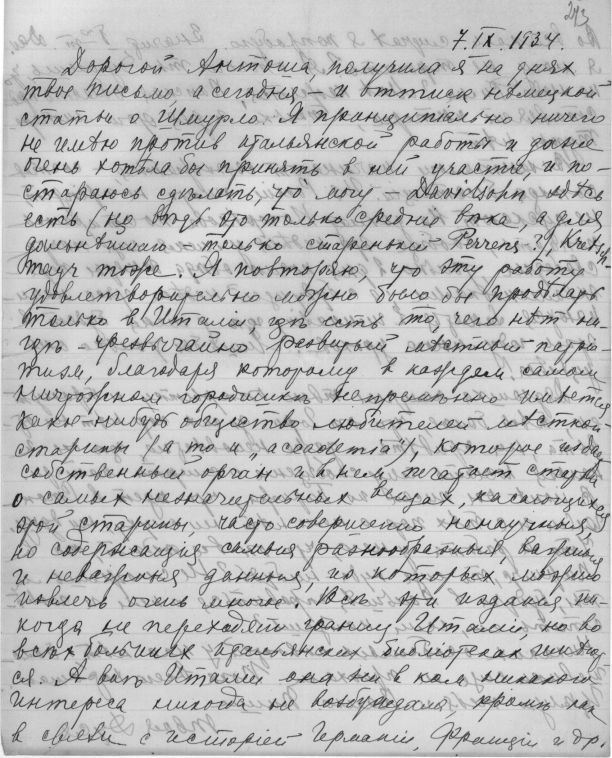 213
7.IX.1934.
Дорогой Антоша, получила я на днях
твое письмо, а сегодня – и оттиск немецкой
статьи о Шмурло. Я принципиально ничего
не имѣю против итальянской работы и даже
очень хотѣла бы принять в ней участіе и по-
стараюсь сдѣлать, что могу – Davidsohn здѣсь
есть (но вѣдь это только средніе вѣка, а для
дальнѣйшаго – только старенькій Perrens?), Kretsch-
mayr тоже. Я повторяю, что эту работу
удовлетворительно можно было бы продѣлать
только в Италіи, гдѣ есть то, чего нѣт ни-
гдѣ – чрезвычайно развитый мѣстный патріо-
тизм, благодаря которому в каждом самом
ничтожном городишкѣ непремѣнно имѣется
какое-нибудь общество любителей мѣстной
старины (а то и „accademia"), которое издает
собственный орган и в нем печатает статьи
о самых незначительных вещах, касающихся
этой старины, часто совершенно ненаучныя,
но содержащія самыя разнообразныя, важныя
и неважныя данныя, из которых можно
извлечь очень многое. Всѣ эти изданія ни-
когда не переходят границ Италіи, но во
всѣх больших итальянских библіотеках имѣют-
ся. А внѣ Италіи она ни в ком никакого
интереса никогда не возбуждала, кромѣ как
в связи с исторіей Германіи, Франціи и др.